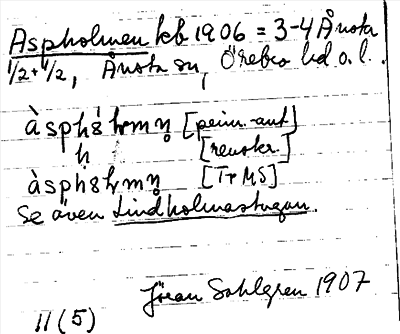 Aspholmen kb 1906 = 3-4 Ånsta
1/2 + 1/2, Ånsta sn, Örebro hd o. l.
àsphȯlmn̥ [prim.-ant]
h [renskr.]
àsphȯlmn̥ [Tr MS]
Se även Lindholmastugan.
Jöran Sahlgren 1907
11 (5)